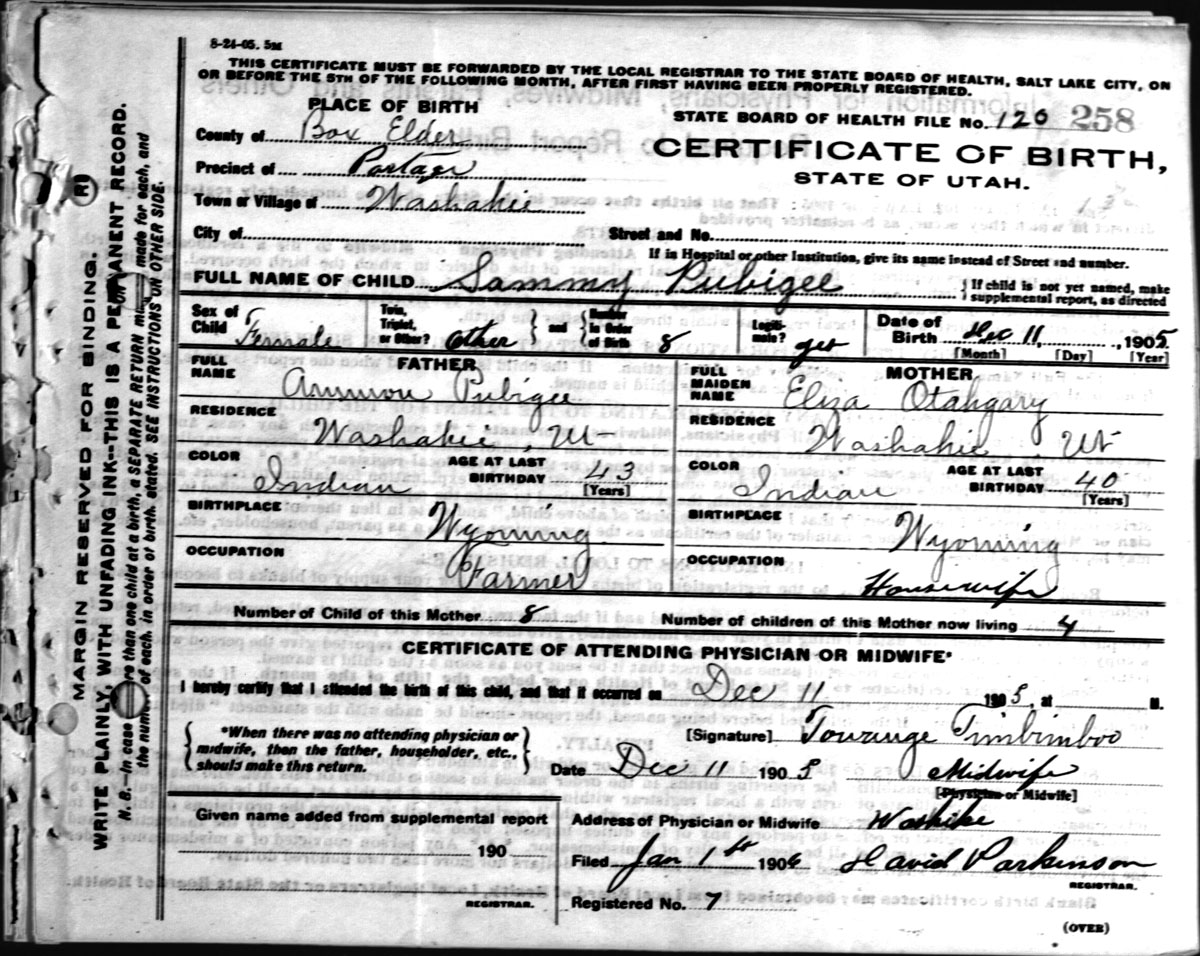 8-24-05. 5M
THIS CERTIFICATE MUST BE FORWARDED BY THE LOCAL REGISTRAR TO THE STATE BOARD OF HEALTH, SALT LAKE CITY, ON
OR BEFORE THE 5TH OF THE FOLLOWING MONTH, AFTER FIRST HAVING BEEN PROPERLY REGISTERED.
PLACE OF BIRTH
STATE BOARD OF HEALTH FILE No. 120 258
County of Box Elder
CERTIFICATE OF BIRTH,
STATE OF UTAH.
Precinct of Portage
Town or Village of Washakie
City of Street and No.
If in Hospital or other Institution, give its name instead of Street and number.
FULL NAME OF CHILD Sammy Pubigee { If child is not yet named, make supplemental report, as directed
Sex of Child Female Twin, Triplet, or Other? other } and { Number in Order of Birth 8 Legitimate? yes Date of Birth Dec 11, 1905
[Month] [Day] [Year]
FATHER
FULL NAME Ammon Pubigee
RESIDENCE Washakie, Ut
COLOR Indian AGE AT LAST BIRTHDAY 43 [Years]
BIRTHPLACE Wyoming
OCCUPATION Farmer
MOTHER
FULL MAIDEN NAME Eliza Otahgary
RESIDENCE Washakie Ut
COLOR Indian AGE AT LAST BIRTHDAY 40 [Years]
BIRTHPLACE Wyoming
OCCUPATION Housewife
Number of Child of this Mother 8 Number of children of this Mother now living 4
CERTIFICATE OF ATTENDING PHYSICIAN OR MIDWIFE*
I hereby certify that I attended the birth of this child, and that it occurred on Dec 11 1905, at M.
{ *When there was no attending physician or midwife, then the father, householder, etc., should make this return. }
[Signature] Towange Timbimboo
Date Dec 11 1905 Midwife
[Physician or Midwife]
Given name added from supplemental report
190
REGISTRAR.
Address of Physician or Midwife Washike
Filed Jan 1st 1906 David Parkinson
REGISTRAR.
Registered No. 7
(OVER)
MARGIN RESERVED FOR BINDING.
WRITE PLAINLY, WITH UNFADING INK—THIS IS A PERMANENT RECORD.
N.B.—In case of more than one child at a birth, a SEPARATE RETURN must be made for each, and
the number of each, in order of birth, stated. SEE INSTRUCTIONS ON OTHER SIDE.